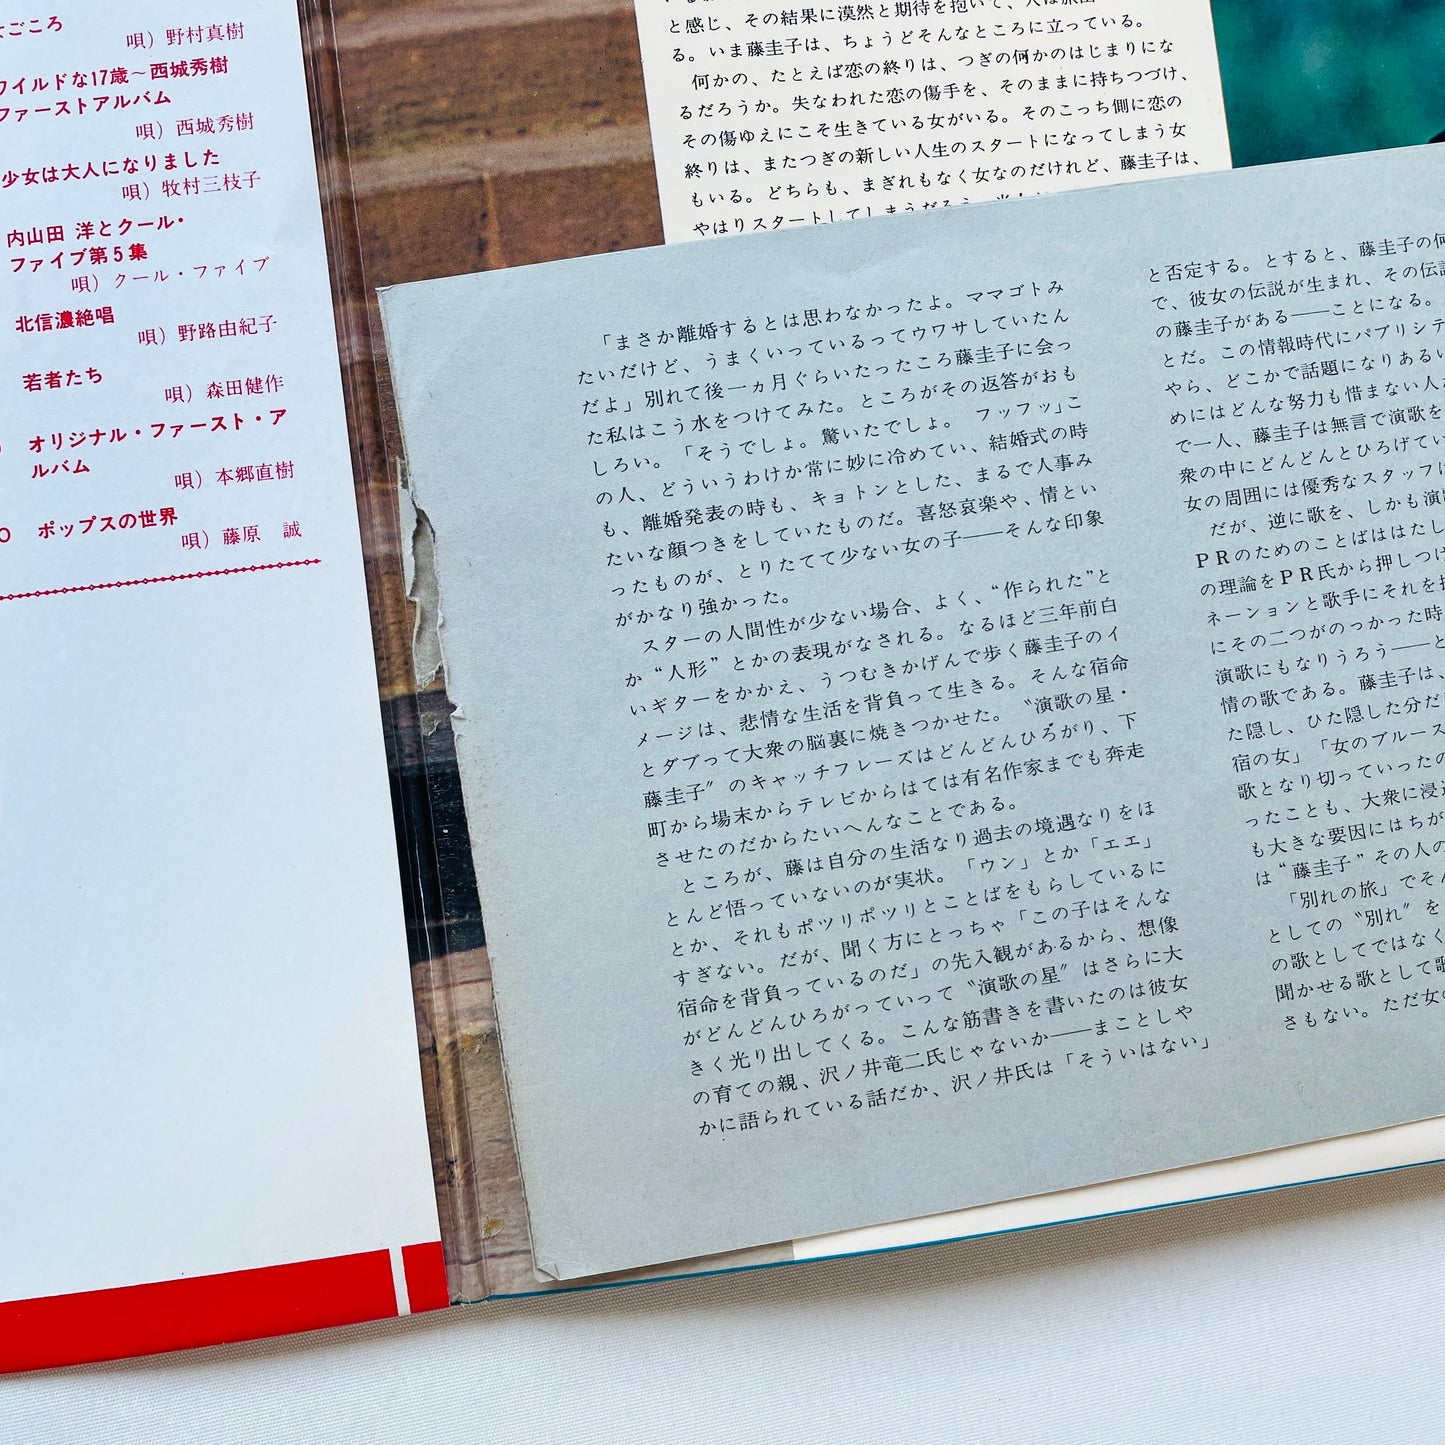 ごころ
唄）野村真樹
ワイルドな17歳～西城秀樹
ファーストアルバム
唄）西城秀樹
少女は大人になりました
唄）牧村三枝子
内山田 洋とクール・
ファイブ第5集
唄）クール・ファイブ
北信濃絶唱
唄）野路由紀子
若者たち
唄）森田健作
オリジナル・ファースト・ア
ルバム
唄）本郷直樹
ポップスの世界
唄）藤原 誠
と感じ、その結果に漠然と期待を抱いて、人は旅
る。いま藤圭子は、ちょうどそんなところに立っている。
何かの、たとえば恋の終りは、つぎの何かのはじまりにな
るだろうか。失なわれた恋の傷手を、そのままに持ちつづけ、
その傷ゆえにこそ生きている女がいる。そのこっち側に恋の
終りは、またつぎの新しい人生のスタートになってしまう女
もいる。どちらも、まぎれもなく女なのだけれど、藤圭子は、
やはりスタートしてしまうだろう。
「まさか離婚するとは思わなかったよ。ママゴトみ
たいだけど、うまくいっているってウワサしていたん
だよ」別れて後一ヵ月ぐらいたったころ藤圭子に会っ
た私はこう水をつけてみた。ところがその返答がおも
しろい。「そうでしょ。驚いたでしょ。フッフッ」こ
の人、どういうわけか常に妙に冷めてい、結婚式の時
も、離婚発表の時も、キョトンとした、まるで人事み
たいな顔つきをしていたものだ。喜怒哀楽や、情とい
ったものが、とりたてて少ない女の子――そんな印象
がかなり強かった。
スターの人間性が少ない場合、よく、“作られた”と
か“人形”とかの表現がなされる。なるほど三年前白
いギターをかかえ、うつむきかげんで歩く藤圭子のイ
メージは、悲惰な生活を背負って生きる。そんな宿命
とダブって大衆の脳裏に焼きつかせた。〝演歌の星・
藤圭子〟のキャッチフレーズはどんどんひろがり、下
町から場末からテレビからはては有名作家までも奔走
させたのだからたいへんなことである。
ところが、藤は自分の生活なり過去の境遇なりをほ
とんど悟っていないのが実状。「ウン」とか「エエ」
とか、それもポツリポツリとことばをもらしているに
すぎない。だが、聞く方にとっちゃ「この子はそんな
宿命を背負っているのだ」の先入観があるから、想像
がどんどんひろがっていって〝演歌の星〟はさらに大
きく光り出してくる。こんな筋書きを書いたのは彼女
の育ての親、沢ノ井竜二氏じゃないか――まことしや
かに語られている話だか、沢ノ井氏は「そういはない」
と否定する。とすると、藤圭子の何
で、彼女の伝説が生まれ、その伝説
の藤圭子がある――ことになる。
とだ。この情報時代にパブリシテ
やら、どこかで話題になりあるい
めにはどんな努力も惜まない人
で一人、藤圭子は無言で演歌を
衆の中にどんどんとひろげてい
女の周囲には優秀なスタッフ
だが、逆に歌を、しかも演
PRのためのことばははたし
の理論をPR氏から押しつけ
ネーションと歌手にそれを
にその二つがのっかった時
演歌にもなりうろう――と
情の歌である。藤圭子は、
た隠し、ひた隠した分だ
宿の女」「女のブルース
歌となり切っていったの
ったことも、大衆に浸
も大きな要因にはちが
は“藤圭子”その人の
「別れの旅」でそん
としての〝別れ〟を
の歌としてではなく
聞かせる歌として
さもない。ただ女の